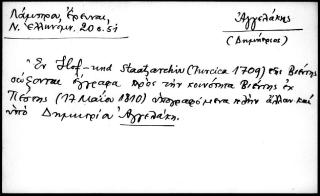 Λάμπρου, Έρευναι,
Ν. Ελληνομν. 20 σ. 51
Αγγελάκης
(Δημήτριος)
"Εν Hof- und Staatsarchiv (Turcica 1709) της Βιέννης
σώζονται έγγραφα προς την κοινότητα Βιέννης εκ
Πέστης (17 Μαΐου 1810) υπογραφόμενα πλην άλλων και
υπό Δημητρίου Αγγελάκη.